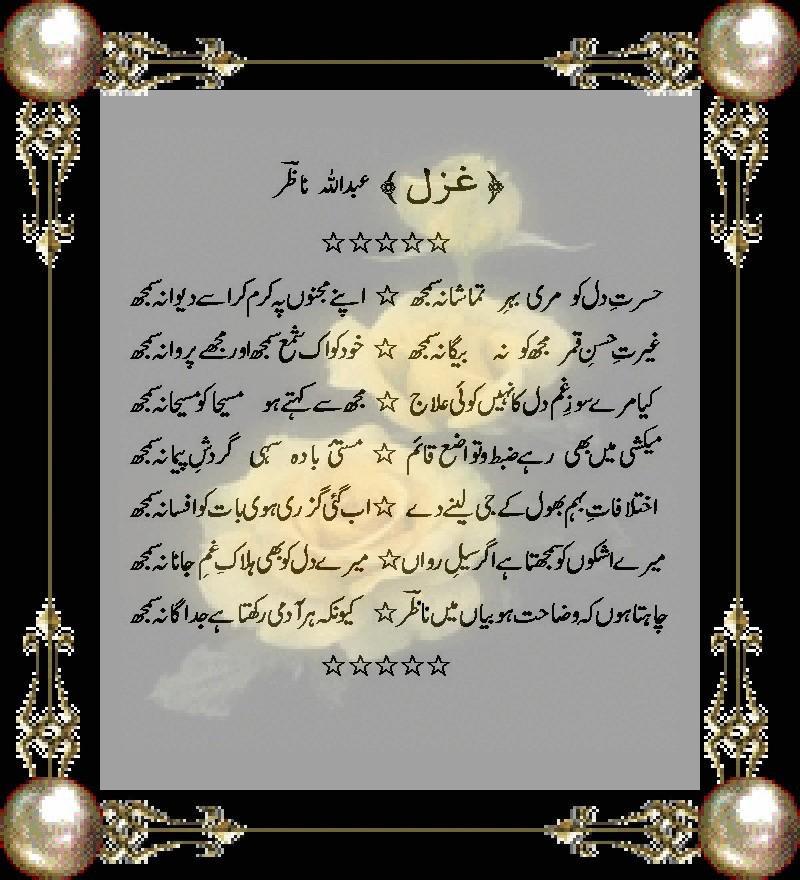 ﴿ غزل ﴾ عبداللہ ناظرؔ
☆☆☆☆☆
حسرتِ دل کو مری بہرِ تماشا نہ سمجھ ☆ اپنے مجنوں پہ کرم کر اسے دیوانہ سمجھ
غیرتِ حسنِ قمر مجھ کو نہ بیگانہ سمجھ ☆ خود کو اک شمع سمجھ اور مجھے پروانہ سمجھ
کیا مرے سوزِ غمِ دل کا نہیں کوئی علاج ☆ مجھ سے کہتے ہو مسیحا کو مسیحا نہ سمجھ
میکشی میں بھی رہے ضبط و تواضع قائم ☆ مستیٔ بادہ سہی گردشِ پیمانہ سمجھ
اختلافاتِ بہم بھول کے جی لینے دے ☆ اب گئی گزری ہوی بات کو افسانہ سمجھ
میرے اشکوں کو سمجھتا ہے اگر سیلِ رواں ☆ میرے دل کو بھی ہلاکِ غمِ جانانہ سمجھ
چاہتا ہوں کہ وضاحت ہو بیاں میں ناظرؔ ☆ کیونکہ ہر آدمی رکھتا ہے جداگانہ سمجھ
☆☆☆☆☆